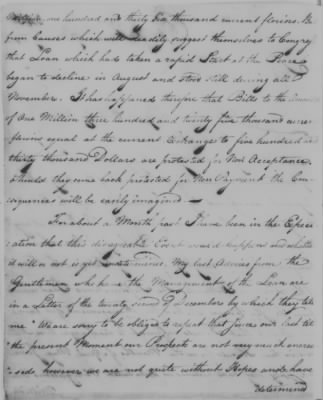 Million one hundred and thirty six thousand current florins. But
from Causes which will readily suggest themselves to Congress
that Loan which had taken a rapid Start at the Peace
began to decline in August and stood still during all
November. It has happened therefore that Bills to the Amount
of One Million three hundred and twenty five thousand
florins equal at the current Exchange to five hundred and
thirty thousand Dollars are protested for Non Acceptance.
Should they come back protested for Non Payment the Con-
sequences will be easily imagined —
For about a Month past I have been in the Expec-
tation that this disagreable Event would happen and whether
it will or not is yet My last Advices from the
Gentlemen who have the Management of the Loan are
in a Letter of the twenty second of December by which they tell
me "We are sorry to be obliged to repeat that since our last till
"the present Moment our Prospects are not very much increa-
"sed, however we are not quite without Hopes and have
"determined